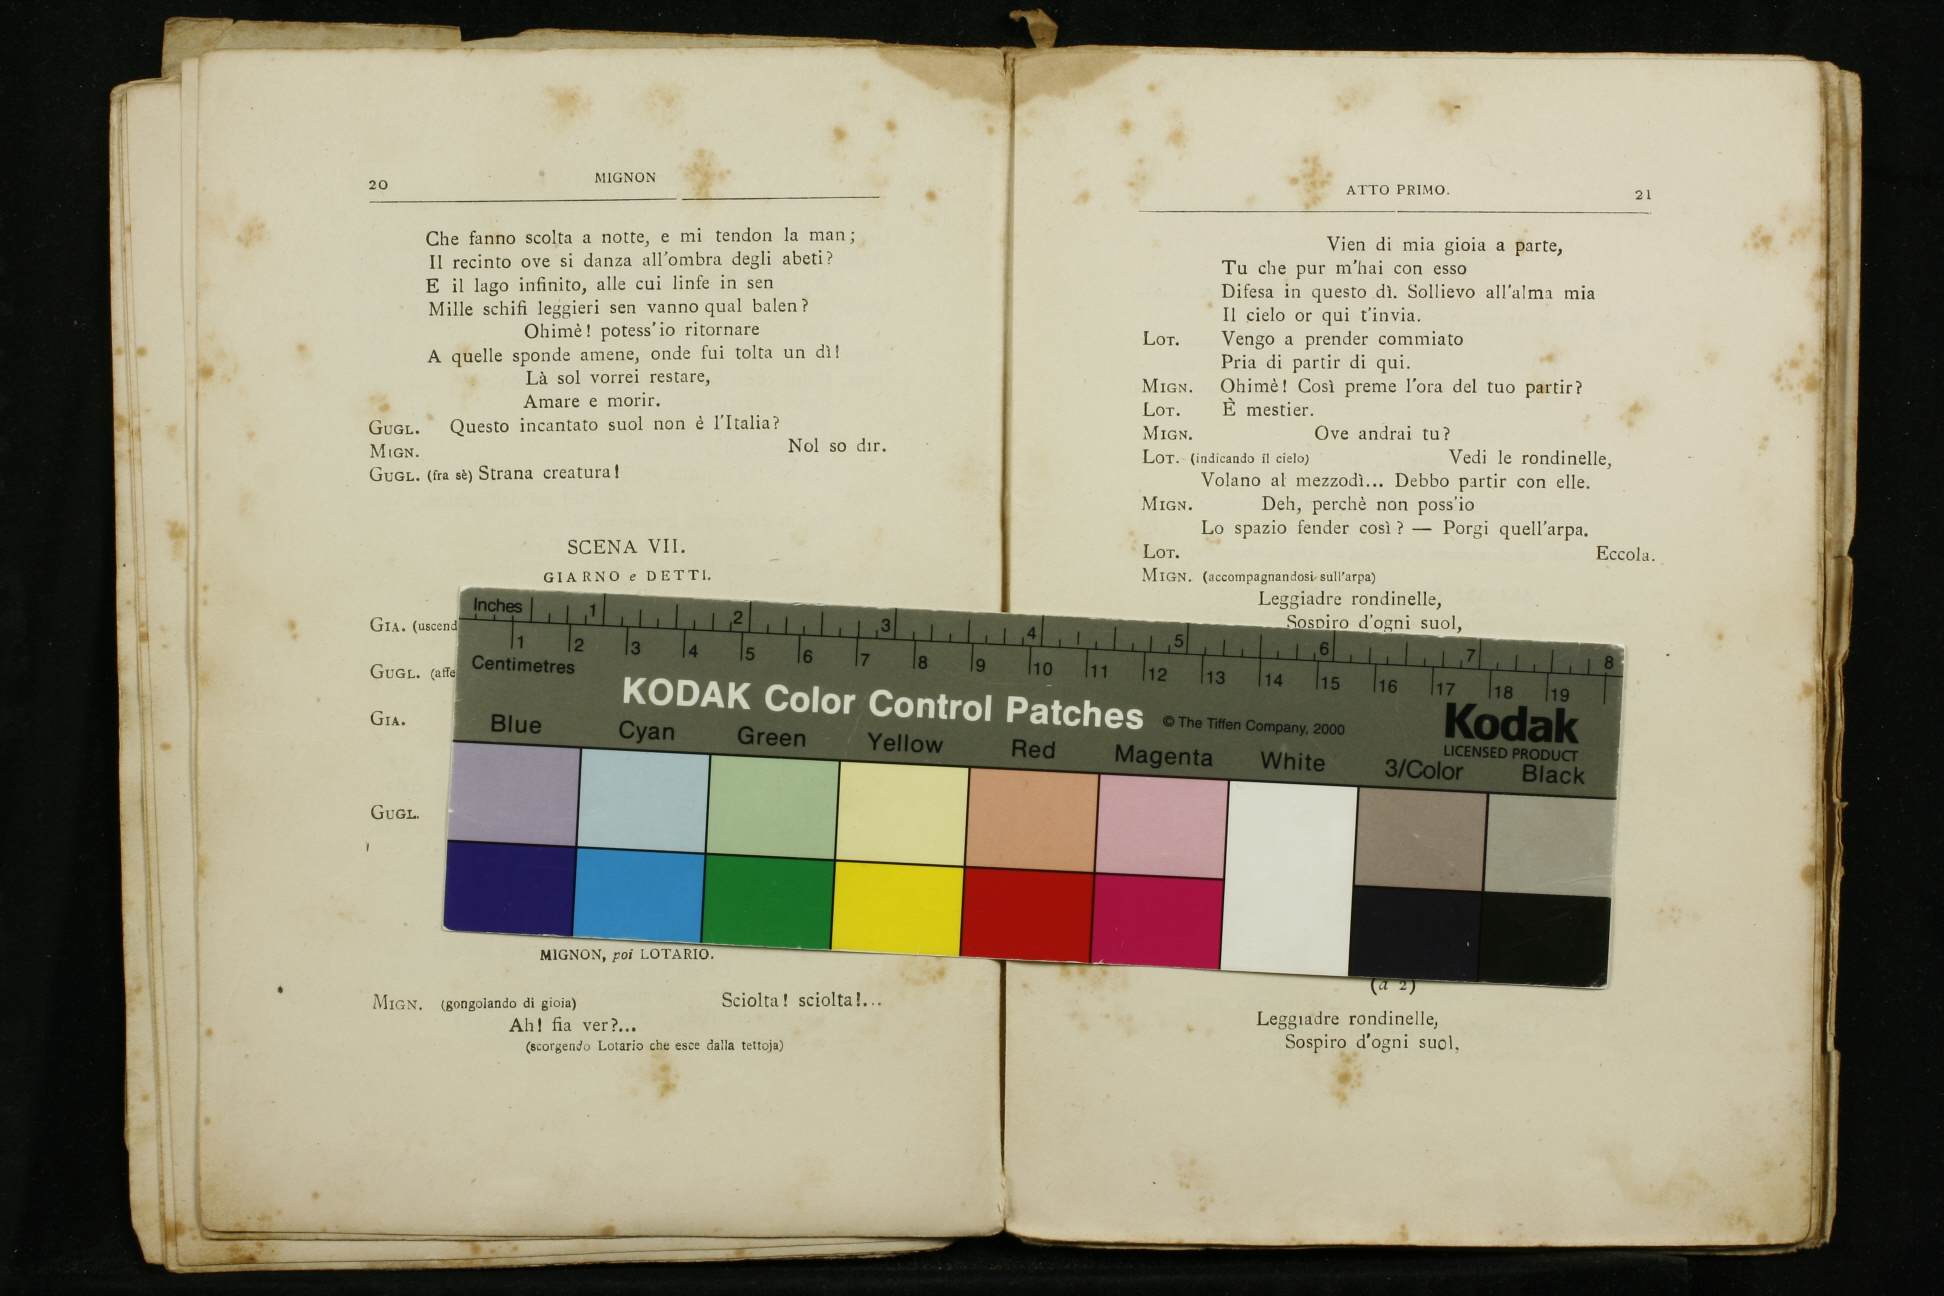 20
MIGNON
Che fanno scolta a notte, e mi tendon la man;
Il recinto ove si danza all'ombra degli abeti?
E il lago infinito, alle cui linfe in sen
Mille schifi leggieri sen vanno qual balen?
Ohimè! potess'io ritornare
A quelle sponde amene, onde fui tolta un dì!
Là sol vorrei restare,
Amare e morir.
GUGL. Questo incantato suol non è l'Italia?
MIGN. Nol so dir.
GUGL. (fra sè) Strana creatura!
SCENA VII.
GIARNO e DETTI.
GIA. (uscend
GUGL. (affe
GIA.
GUGL.
MIGNON, poi LOTARIO.
MIGN. (gongolando di gioia) Sciolta! sciolta!...
Ah! fia ver?...
(scorgendo Lotario che esce dalla tettoja)
ATTO PRIMO.
21
Vien di mia gioia a parte,
Tu che pur m'hai con esso
Difesa in questo dì. Sollievo all'alma mia
Il cielo or qui t'invia.
LOT. Vengo a prender commiato
Pria di partir di qui.
MIGN. Ohimè! Così preme l'ora del tuo partir?
LOT. È mestier.
MIGN. Ove andrai tu?
LOT. (indicando il cielo) Vedi le rondinelle,
Volano al mezzodì... Debbo partir con elle.
MIGN. Deh, perchè non poss'io
Lo spazio fender così? — Porgi quell'arpa.
LOT. Eccola.
MIGN. (accompagnandosi sull'arpa)
Leggiadre rondinelle,
Sospiro d'ogni suol,
(a 2)
Leggiadre rondinelle,
Sospiro d'ogni suol,
Inches 1 2 3 4 5 6 7 8
1 2 3 4 5 6 7 8 9 10 11 12 13 14 15 16 17 18 19
Centimetres
KODAK Color Control Patches © The Tiffen Company, 2000
Kodak
LICENSED PRODUCT
Blue Cyan Green Yellow Red Magenta White 3/Color Black